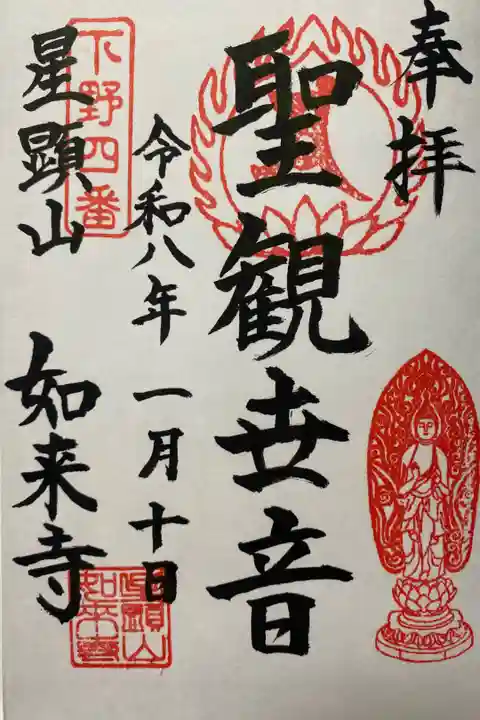 奉拝
聖観世音
令和八年 一月十日
下野四番
星顕山 如来寺
星顕山
如来寺